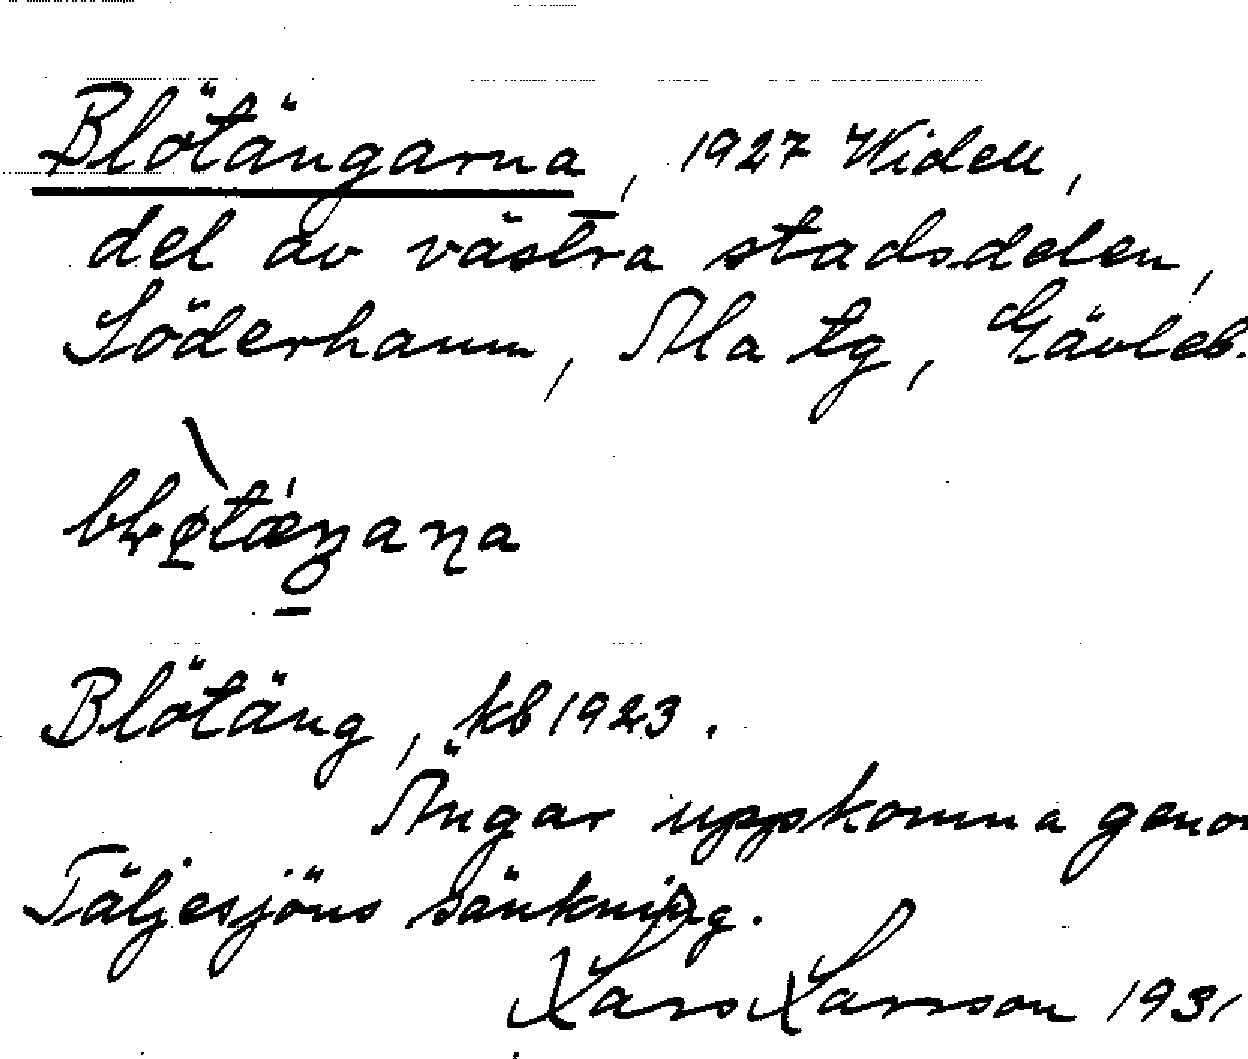 Blötängarna, 1927 Widell,
del av västra stadsdelen,
Söderhamn, Ala tg, Gävleb.
Blötäng, kb 1923.
Ängar uppkomna genom
Täljesjöns sänkning.
Lars Larsson 1931